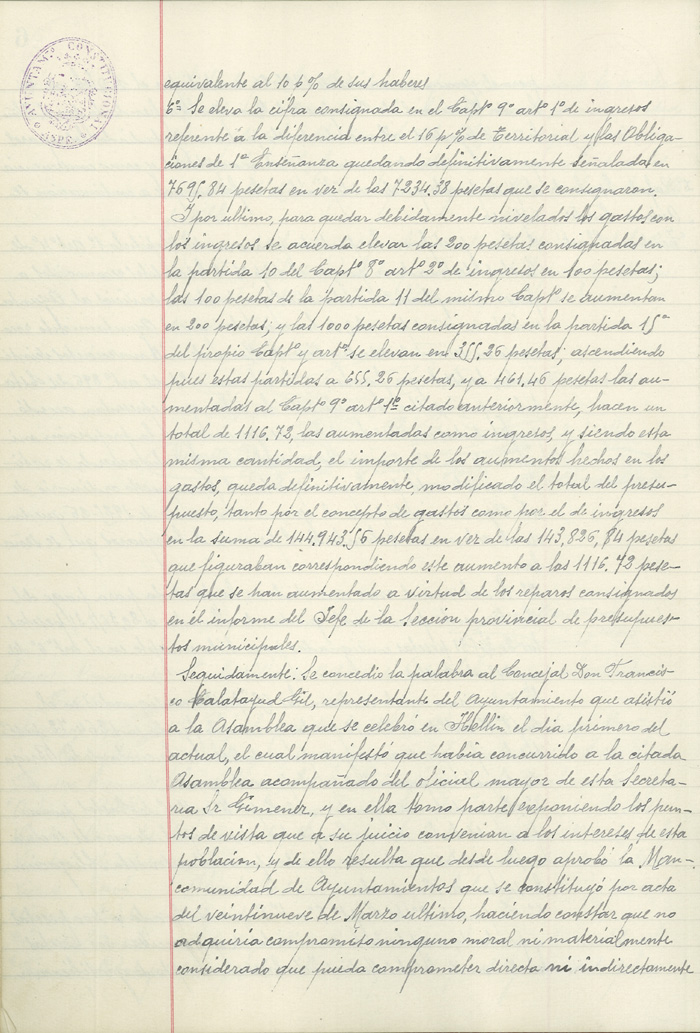 AYUNTAMº CONSTITUCIONAL
ASPE
equivalente al 10 p% de sus haberes
6º= Se eleva la cifra consignada en el Captº 9º artº 1º de ingresos
referente á la diferencia entre el 16 p% de Territorial y las Obliga-
ciones de 1ª Enseñanza quedando definitivamente señalada en
7695,84 pesetas en vez de las 7234.38 pesetas que se consignaron.
Y por ultimo, para quedar debidamente nivelados los gastos con
los ingresos se acuerda elevar las 200 pesetas consignadas en
la partida 10 del Captº 8º artº 2º de ingresos en 100 pesetas;
las 100 pesetas de la partida 11 del mismo Captº se aumentan
en 200 pesetas; y las 1000 pesetas consignadas en la partida 15ª
del propio Captº y artº se elevan en 355,26 pesetas; ascendiendo
pues estas partidas a 655,26 pesetas, y a 461,46 pesetas las au-
mentadas al Captº 9º artº 1º citado anteriormente, hacen un
total de 1116.72, las aumentadas como ingresos, y siendo esta
misma cantidad, el importe de los aumentos hechos en los
gastos, queda definitivamente, modificado el total del presu-
puesto, tanto por el concepto de gastos como por el de ingresos
en la suma de 144.943.56 pesetas en vez de las 143,826,84 pesetas
que figuraban correspondiendo este aumento a las 1116.72 pese-
tas que se han aumentado a virtud de los reparos consignados
en el informe del Jefe de la Sección provincial de presupues-
tos municipales.
Seguidamente: Se concedio la palabra al Concejal Don Francis-
co Calatayud Gil, representante del Ayuntamiento que asistió
a la Asamblea que se celebró en Hellin el dia primero del
actual, el cual manifestó que habia concurrido a la citada
Asamblea acompañado del oficial mayor de esta Secreta-
ria Sr Gimenez, y en ella tomo parte exponiendo los pun-
tos de vista que á su juicio convenian a los intereses de esta
poblacion, y de ello resulta que desde luego aprobó la Man-
comunidad de Ayuntamientos que se constituyó por acta
del veintinueve de Marzo ultimo, haciendo constar que no
adquiria compromiso ninguno moral ni materialmente
considerado que pueda comprometer directa ni indirectamente